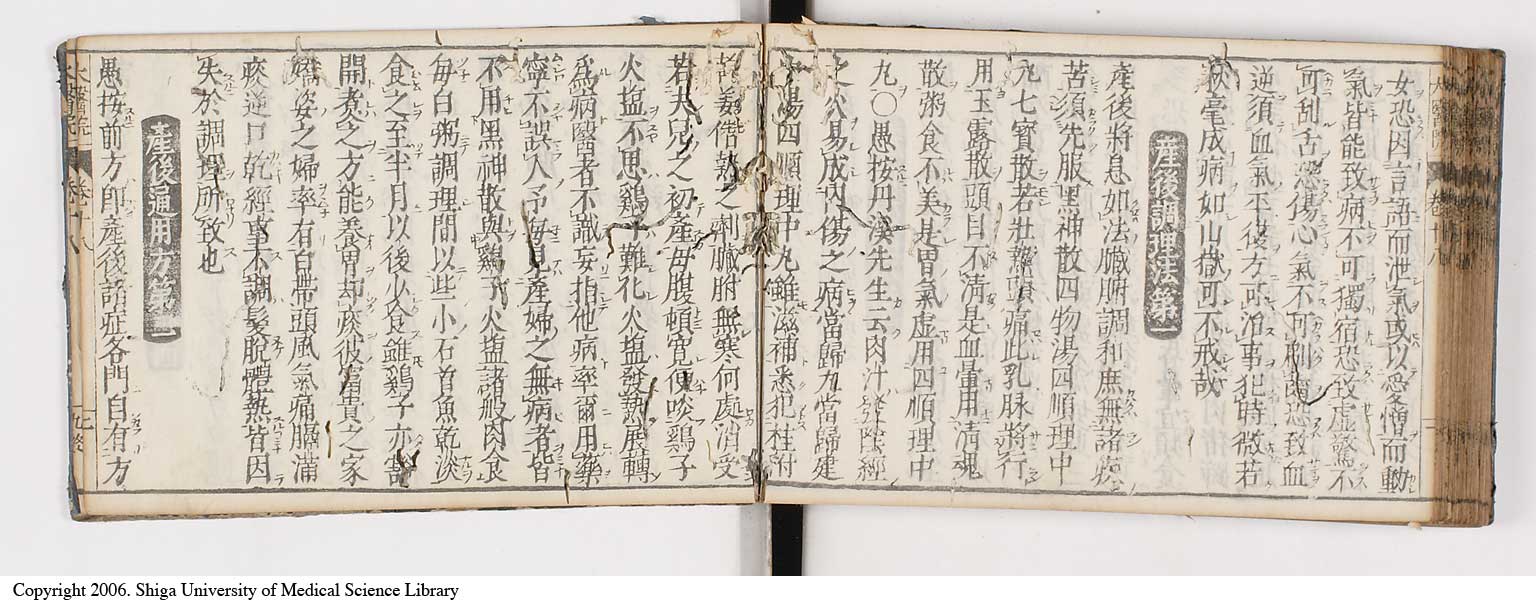 女恐因言語而泄氣或以愛憎而動
氣皆能致病不可獨宿恐致虛驚不
可刮舌恐傷心氣不可刷齒恐致血
逆須血氣平復方可治事犯時微若
秋毫成病如山嶽可不戒哉
産後調理法第一
産後將息如法臟腑調和庶無諸疾
苦須先服黑神散四物湯四順理中
丸七寶散若壯熱頭痛此乳脉將行
用玉露散頭目不清是血暈用清魂
散粥食不美是胃氣虛用四順理中
丸〇愚按丹溪先生云肉汁發陰經
之火易成內傷之病當歸丸當歸建
中湯四順理中丸雖滋補悉犯桂附
乾姜僭熱之劑臟腑無寒何處消受
若夫兒之初産母腹頓寬便啖鷄子
火塩不思鷄子難化火塩發熱展轉
爲病醫者不識妄指他病率爾用藥
寧不誤人予每見産婦之無病者皆
不用黑神散與鷄子火塩諸般肉食
每白粥調理間以些小石首魚乾淡
食之至半月以後少食雖鷄子亦
開煮之方能養胃却痰彼富貴之家
嬌姿之婦率有白帶頭風氣痛膈滿
痰逆口乾經事不調髮脫體熱皆因
失於調理所致也
産後通用方第二
愚按前方即産後諸症各門自有方
Copyright 2006. Shiga University of Medical Science Library